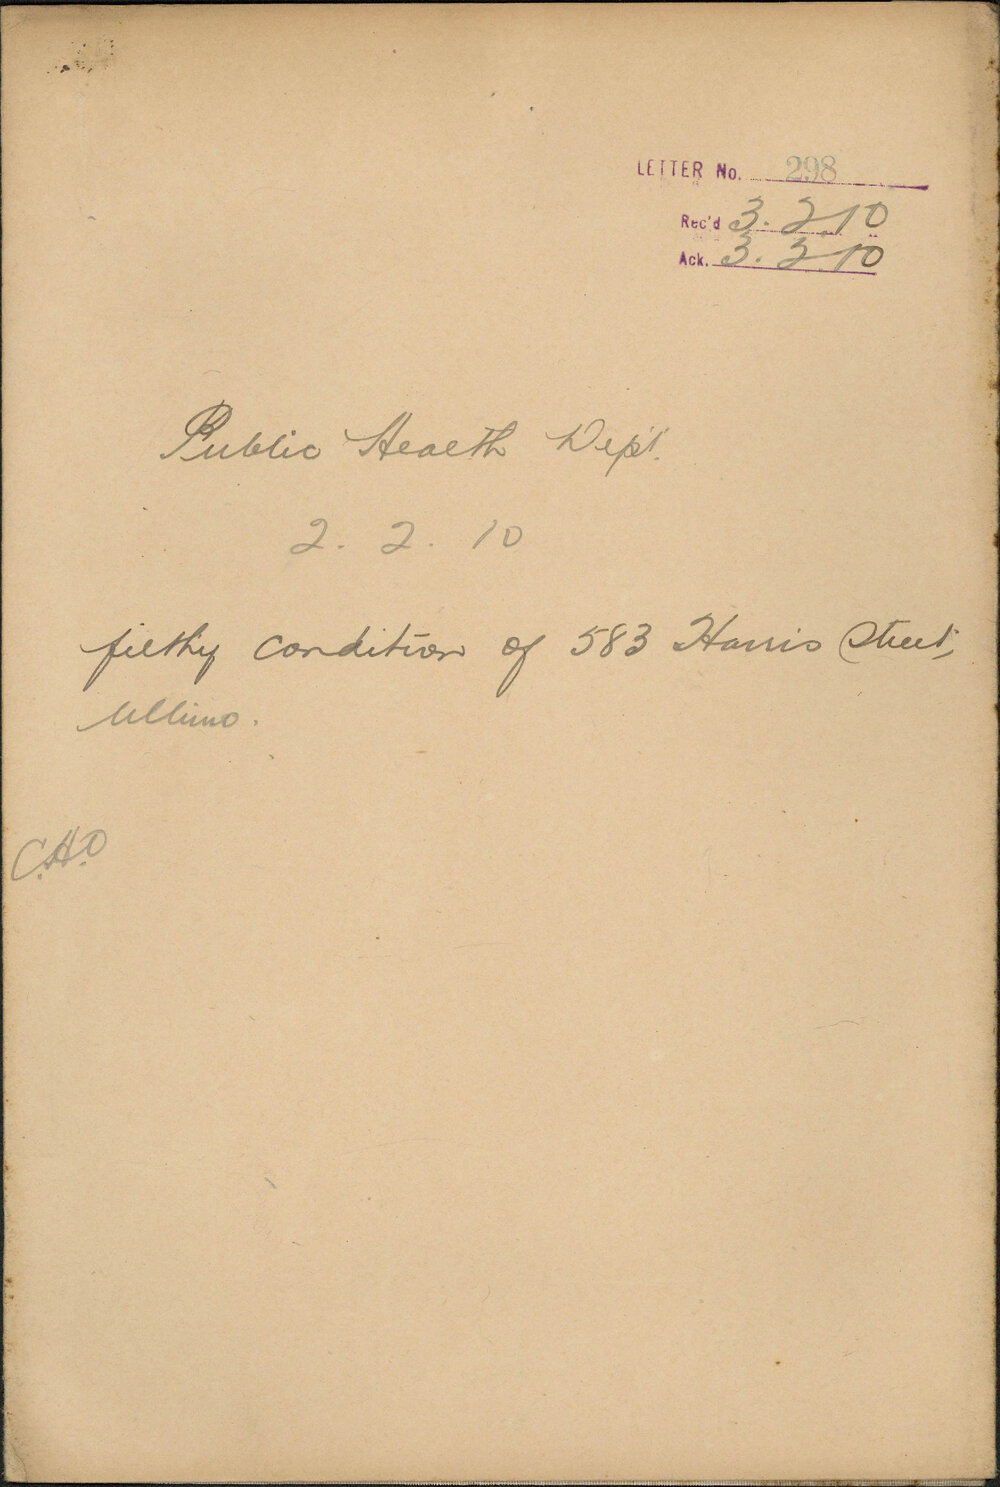 LETTER No. 298
Rec'd 3. 2. 10
Ack. 3. 2. 10
Public Health Dept.
2. 2. 10
filthy condition of 583 Harris Street,
Ultimo.
C.H.O